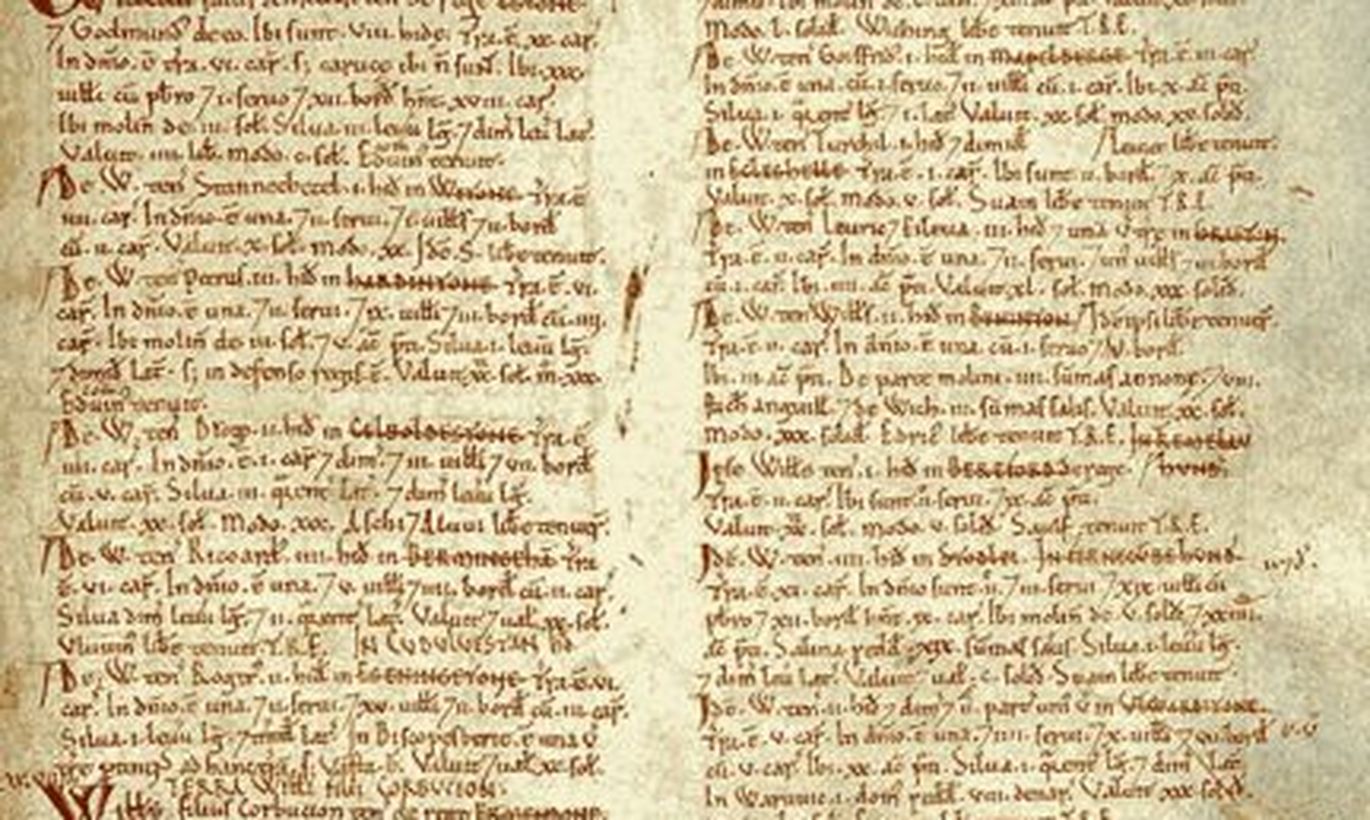 7 Godmund' de eo. Ibi sunt. VIII. hidę. Tra.ē. xx. car̃.
In dñio. ē tra. VI. car̃. s; carucę ibi ñ sunt. Ibi. xxx.
uiłłi cū pb̃ro 7 I. seruo 7 XII. bord̃ hñt. XVIII. car̃.
Ibi moliñ de. III. soł. Silua. III. leuu lg̃. 7 dim̃ leuu lat̃.
Valuit. IIII. lib̃. modo. c. soł. Eduin' tenuit.
De. W. ten' Stannechetel. I. hid̃ in WITONE. Tra.ē
IIII. car̃. In dñio. ē una. 7 II. serui. 7 I. uiłłs 7 II. bord̃
cū. II. car̃. Valuit. x. soł. modo. xx. Idē. S. libe tenuit.
De. W. ten' Petrus. III. hid̃ in HARDINTONE. Tra.ē. VI.
car̃. In dñio. ē una. 7 II. serui. 7 IX. uiłłi 7 III. bord̃ cū. IIII.
car̃. Ibi moliñ de. III. soł. 7 V. ac̃ p̃ti. Silua. I. leuu lg̃.
7 dimid̃ lat̃. s; in defenso regis ē. Valuit. xx. soł. m̊. xxx.
Eduin' tenuit.
De. W. ten' Drogo. II. hid̃ in CELBOLDESTONE. Tra.ē
IIII. car̃. In dñio. ē. I. car̃ 7 dim̃. 7 III. uiłłi 7 VII. bord̃
cū. V. car̃. Silua. III. quent̃ lat̃. 7 dim̃ leuu lg̃.
Valuit. xx. soł. Modo. xxx. Aschi 7 Aluui libe tenueř.
De. W. ten' Ricoard'. IIII. hid̃ in BERMINGEHA'. Tra
ē. VI. car̃. In dñio. ē una. 7 V. uiłłi 7 IIII. bord̃ cū. II. car̃.
Silua dim̃ leuu lg̃. 7 II. quent̃ lat̃. Valuit 7 uał. xx. soł.
Vluuin' libe tenuit. T.R.E. IN CUDULVESTAN HD̃
De. W. ten' Roger'. II. hid̃ in ESENINGETONE. Tra.ē.VI.
car̃. In dñio. ē una. 7 II. serui. 7 XV. uiłłi 7 II. bord̃ cū. III. car̃.
Silua. I. leuu lg̃. 7 dimid̃ lat̃. In Biscopesberie. ē una v̄
TERRA WILLI FILII CORBUCION.
Wills filius Corbucion ten' de rege
Modo. L. solid̃. Wiching libe tenuit T.R.E.
De. W. ten' Goisfrid'. I. hid̃ in MAPELBERGE. Tra.ē. I. car̃.
In dñio. ē una. cū. I. seruo. 7 II. uiłłi cū. I. car̃. Ibi. x. ac̃ p̃ti.
Silua. I. quent̃ lg̃. 7 I. lat̃. Valuit. xx. soł. modo. xxv. solid̃.
De. W. ten' Turchil. I. hid̃ 7 dimid̃ / Leuiet libe tenuit.
in ECLESHELLE. Tra.ē. I. car̃. Ibi sunt. II. bord̃. 7 x. ac̃ p̃ti.
Valuit. x. soł. Modo. v. soł. Suain libe tenuit T.R.E.
De. W. ten' Leuric 7 Eileua. III. hid̃ 7 una v̄ træ in
Tra.ē. II. car̃. In dñio. ē una. 7 II. serui. 7 un' uiłłs 7 III. bord̃
cū. I. car̃. Ibi. IIII. ac̃ p̃ti. Valuit. XL. soł. modo. xxx. solid̃.
De. W. ten' Wills. II. hid̃ in BENINTONE. / Ide ipsi libe tenueř.
Tra.ē. II. car̃. In dñio. ē una cū. I. seruo 7 IV. bord̃.
Ibi. III. ac̃ p̃ti. De parte molini. IIII. sūmas annonę. 7 VIII.
stich anguill. 7 de Wich. III. sūmas salis. Valuit. xx. soł.
Modo. xxx. solid̃. Edric' libe tenuit T.R.E.
Ipse Wills ten'. I. hid̃ in
Tra.ē. II. car̃. Ibi sunt. II. serui. 7 x. ac̃ p̃ti.
Valuit. xx. soł. modo. v. solid̃. Sauuf. tenuit T.R.E.
Idē. W. ten'. IIII. hid̃ in STODLEI. IN FERNECUBE HUND'.
Tra.ē. XI. car̃. In dñio sunt. II. 7 III. serui 7 XIX. uiłłi cū
pb̃ro 7 XII. bord̃ hñt. IX. car̃. Ibi moliñ de. V. solid̃ 7 XXIIII.
ac̃ p̃ti. Salina redd̃. XIX. sūmas salis. Silua. I. leuu lg̃.
7 dim̃ leuu lat̃. Valuit 7 uał. c. solid̃. Suain libe tenuit.
Idē. W. ten'. II. hid̃ 7 dim̃ 7 II. parte uni' v̄ in
Tra.ē. V. car̃. In dñio. ē una. 7 IIII. serui. 7 X. uiłłi 7 VII. bord̃
cū. V. car̃. Ibi. XX. ac̃ p̃ti. Silua. I. quent̃ lg̃. 7 dim̃ lat̃.
In Waruuic. I. dom' redd̃. VIII. denar̃. Valuit. xxx. solid̃.